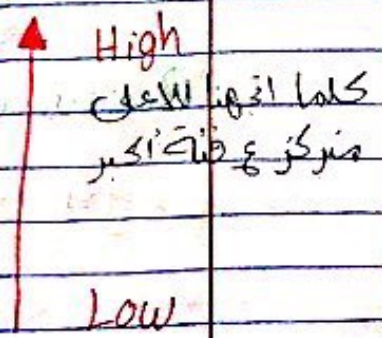 High
كلما اتجهنا للأعلى
منركز ع فئة أكبر
Low